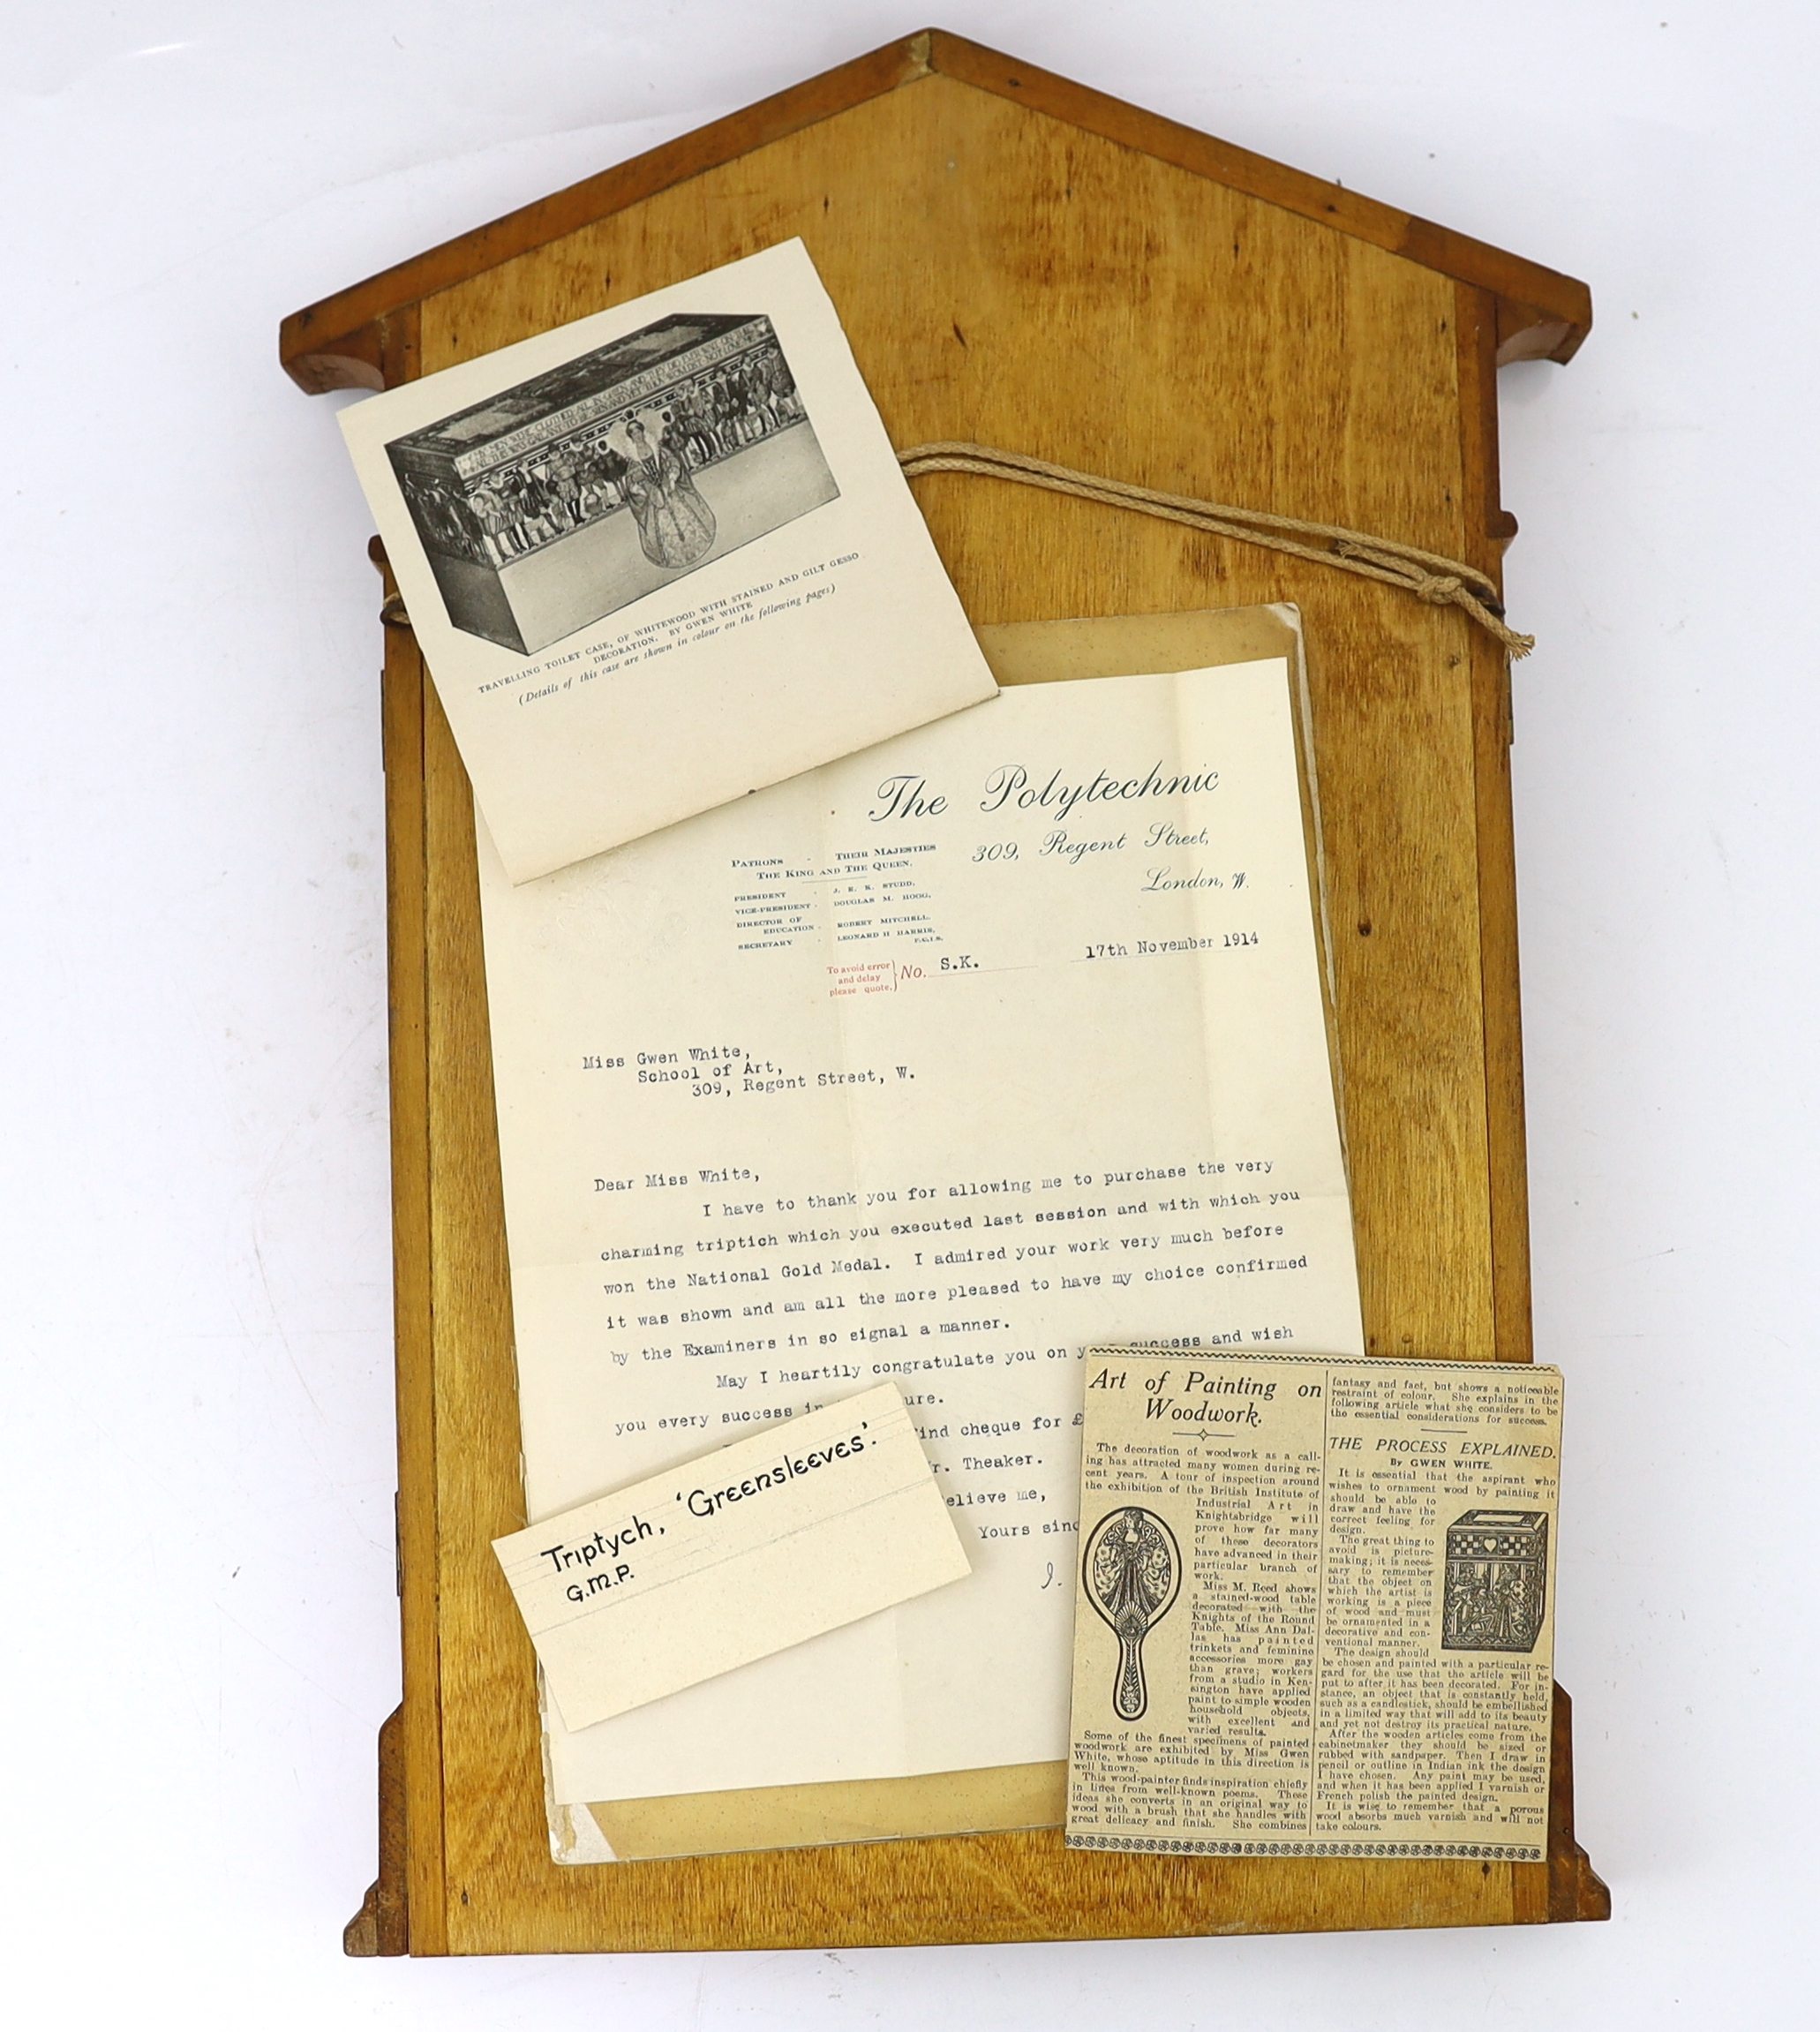 TEN MEN WERE CLOTHED ALL IN GREEN AND THEY DID EVER WAIT ON THEE
ALL THIS WAS GALLANT TO BE SEEN AND YET THOU WOULDST NOT LOVE ME
TRAVELLING TOILET CASE, OF WHITEWOOD WITH STAINED AND GILT GESSO
DECORATION. BY GWEN WHITE
(Details of this case are shown in colour on the following pages)
The Polytechnic
309, Regent Street,
London, W.
PATRONS - THEIR MAJESTIES
THE KING AND THE QUEEN.
PRESIDENT - J. E. K. STUDD,
VICE-PRESIDENT - DOUGLAS M. HOGG,
DIRECTOR OF
EDUCATION - ROBERT MITCHELL.
SECRETARY - LEONARD H HARRIS,
F.C.I.S.
To avoid error
and delay
please quote.
No. S.K.
17th November 1914
Miss Gwen White,
School of Art,
309, Regent Street, W.
Dear Miss White,
I have to thank you for allowing me to purchase the very
charming triptich which you executed last session and with which you
won the National Gold Medal. I admired your work very much before
it was shown and am all the more pleased to have my choice confirmed
by the Examiners in so signal a manner.
May I heartily congratulate you on success and wish
you every success in ure.
find cheque for £
r. Theaker.
elieve me,
Yours sinc
Triptych, 'Greensleeves'.
G.M.P.
Art of Painting on
Woodwork.
The decoration of woodwork as a call-
ing has attracted many women during re-
cent years. A tour of inspection around
the exhibition of the British Institute of
Industrial Art in
Knightsbridge will
prove how far many
of these decorators
have advanced in their
particular branch of
work.
Miss M. Reed shows
a stained-wood table
decorated with the
Knights of the Round
Table. Miss Ann Dal-
las has painted
trinkets and feminine
accessories more gay
than grave; workers
from a studio in Ken-
sington have applied
paint to simple wooden
household objects,
with excellent and
varied results.
Some of the finest specimens of painted
woodwork are exhibited by Miss Gwen
White, whose aptitude in this direction is
well known.
This wood-painter finds inspiration chiefly
in lines from well-known poems. These
ideas she converts in an original way to
wood with a brush that she handles with
great delicacy and finish. She combines
fantasy and fact, but shows a noticeable
restraint of colour. She explains in the
following article what she considers to be
the essential considerations for success.
THE PROCESS EXPLAINED.
By GWEN WHITE.
It is essential that the aspirant who
wishes to ornament wood by painting it
should be able to
draw and have the
correct feeling for
design.
The great thing to
avoid is picture-
making; it is neces-
sary to remember
that the object on
which the artist is
working is a piece
of wood and must
be ornamented in a
decorative and con-
ventional manner.
The design should
be chosen and painted with a particular re-
gard for the use that the article will be
put to after it has been decorated. For in-
stance, an object that is constantly held,
such as a candlestick, should be embellished
in a limited way that will add to its beauty
and yet not destroy its practical nature.
After the wooden articles come from the
cabinetmaker they should be sized or
rubbed with sandpaper. Then I draw in
pencil or outline in Indian ink the design
I have chosen. Any paint may be used,
and when it has been applied I varnish or
French polish the painted design.
It is wise to remember that a porous
wood absorbs much varnish and will not
take colours.